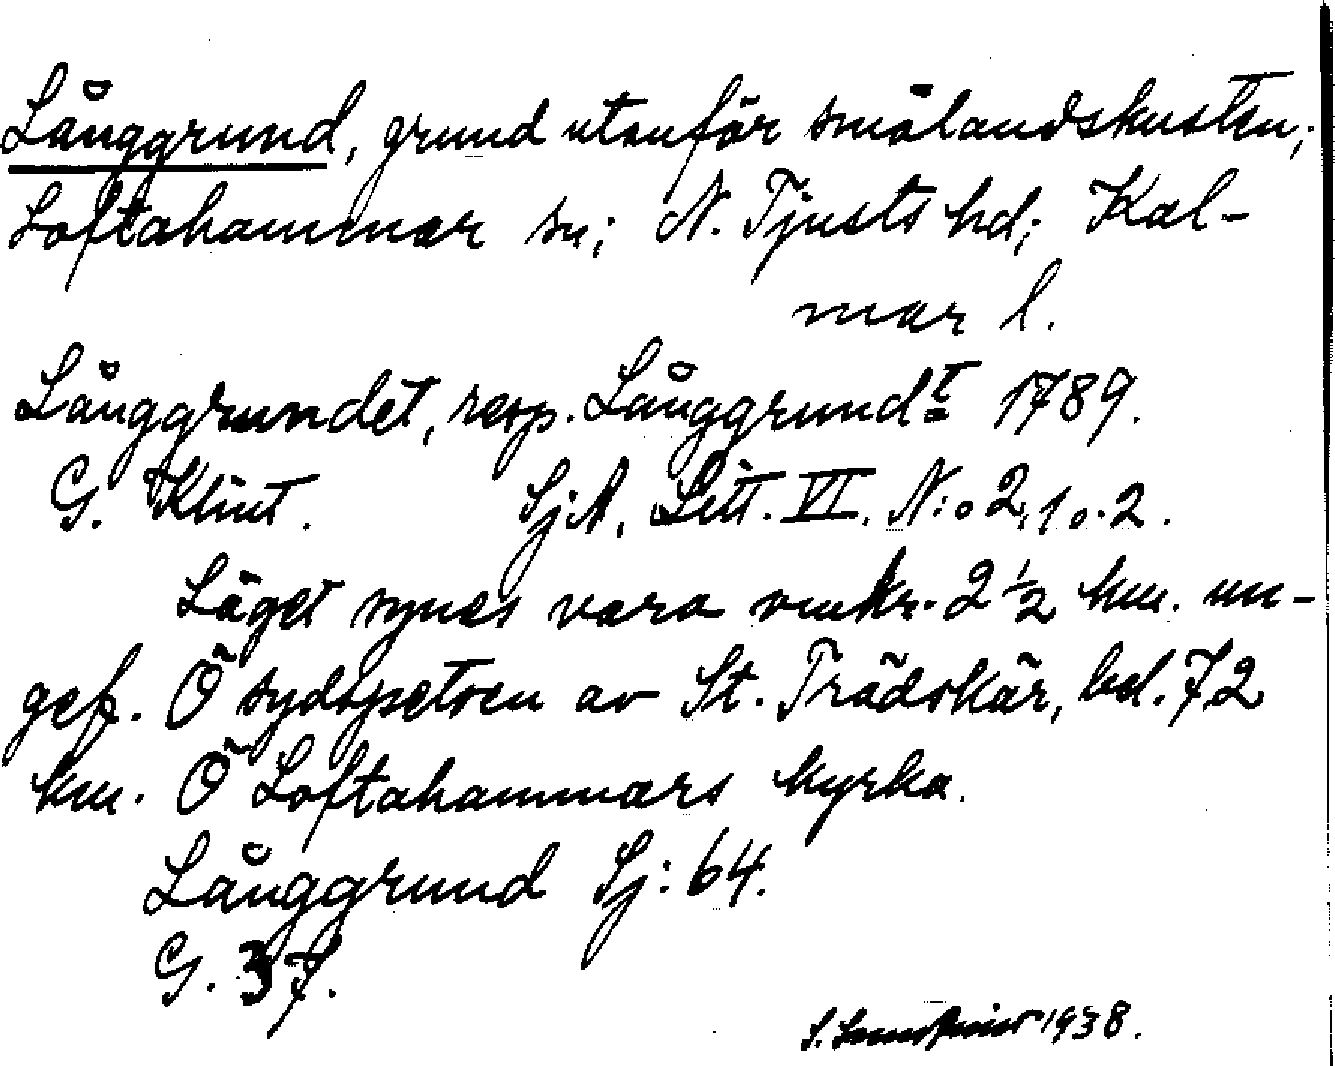 Långgrund, grund utanför smålandskusten;
Loftahammar sn; N. Tjusts hd; Kal-
mar l.
Långgrundet, resp. Långgrundt 1789.
G. Klint. Sj:A, Litt. VI. N:o 2, 1 o. 2.
Läget synes vara omkr. 2 ½ km. un-
gef. Ö sydspetsen av St. Trädskär, bel. 72
km. Ö Loftahammars kyrka.
Långgrund Sj: 64.
G. 37.
S. 1938.